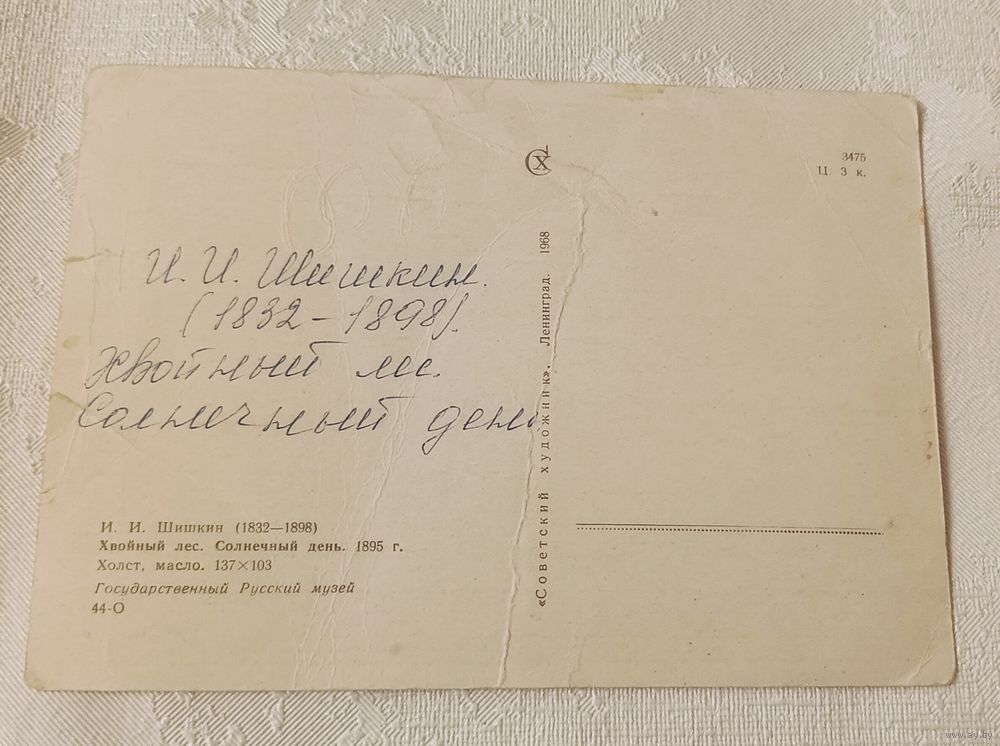 И. И. Шишкин.
(1832 – 1898).
Хвойный лес.
Солнечный день
И. И. Шишкин (1832—1898)
Хвойный лес. Солнечный день. 1895 г.
Холст, масло. 137×103
Государственный Русский музей
44-О
«Советский художник». Ленинград. 1968
СХ
3475
Ц. 3 к.
www.ay.by